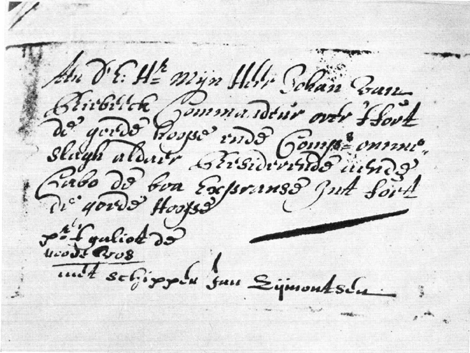 An d'E: Hr. Mijn Heer Johan Van
Riebeeck Commandeur over 't fort
de goede hoope ende Comps. omme-
slagh aldaer Residerende aende
Cabo de boa Expranse Int fort
de goede Hoope
pr. 't galiot de
roode Vos
met schipper Jan Sijmontsen